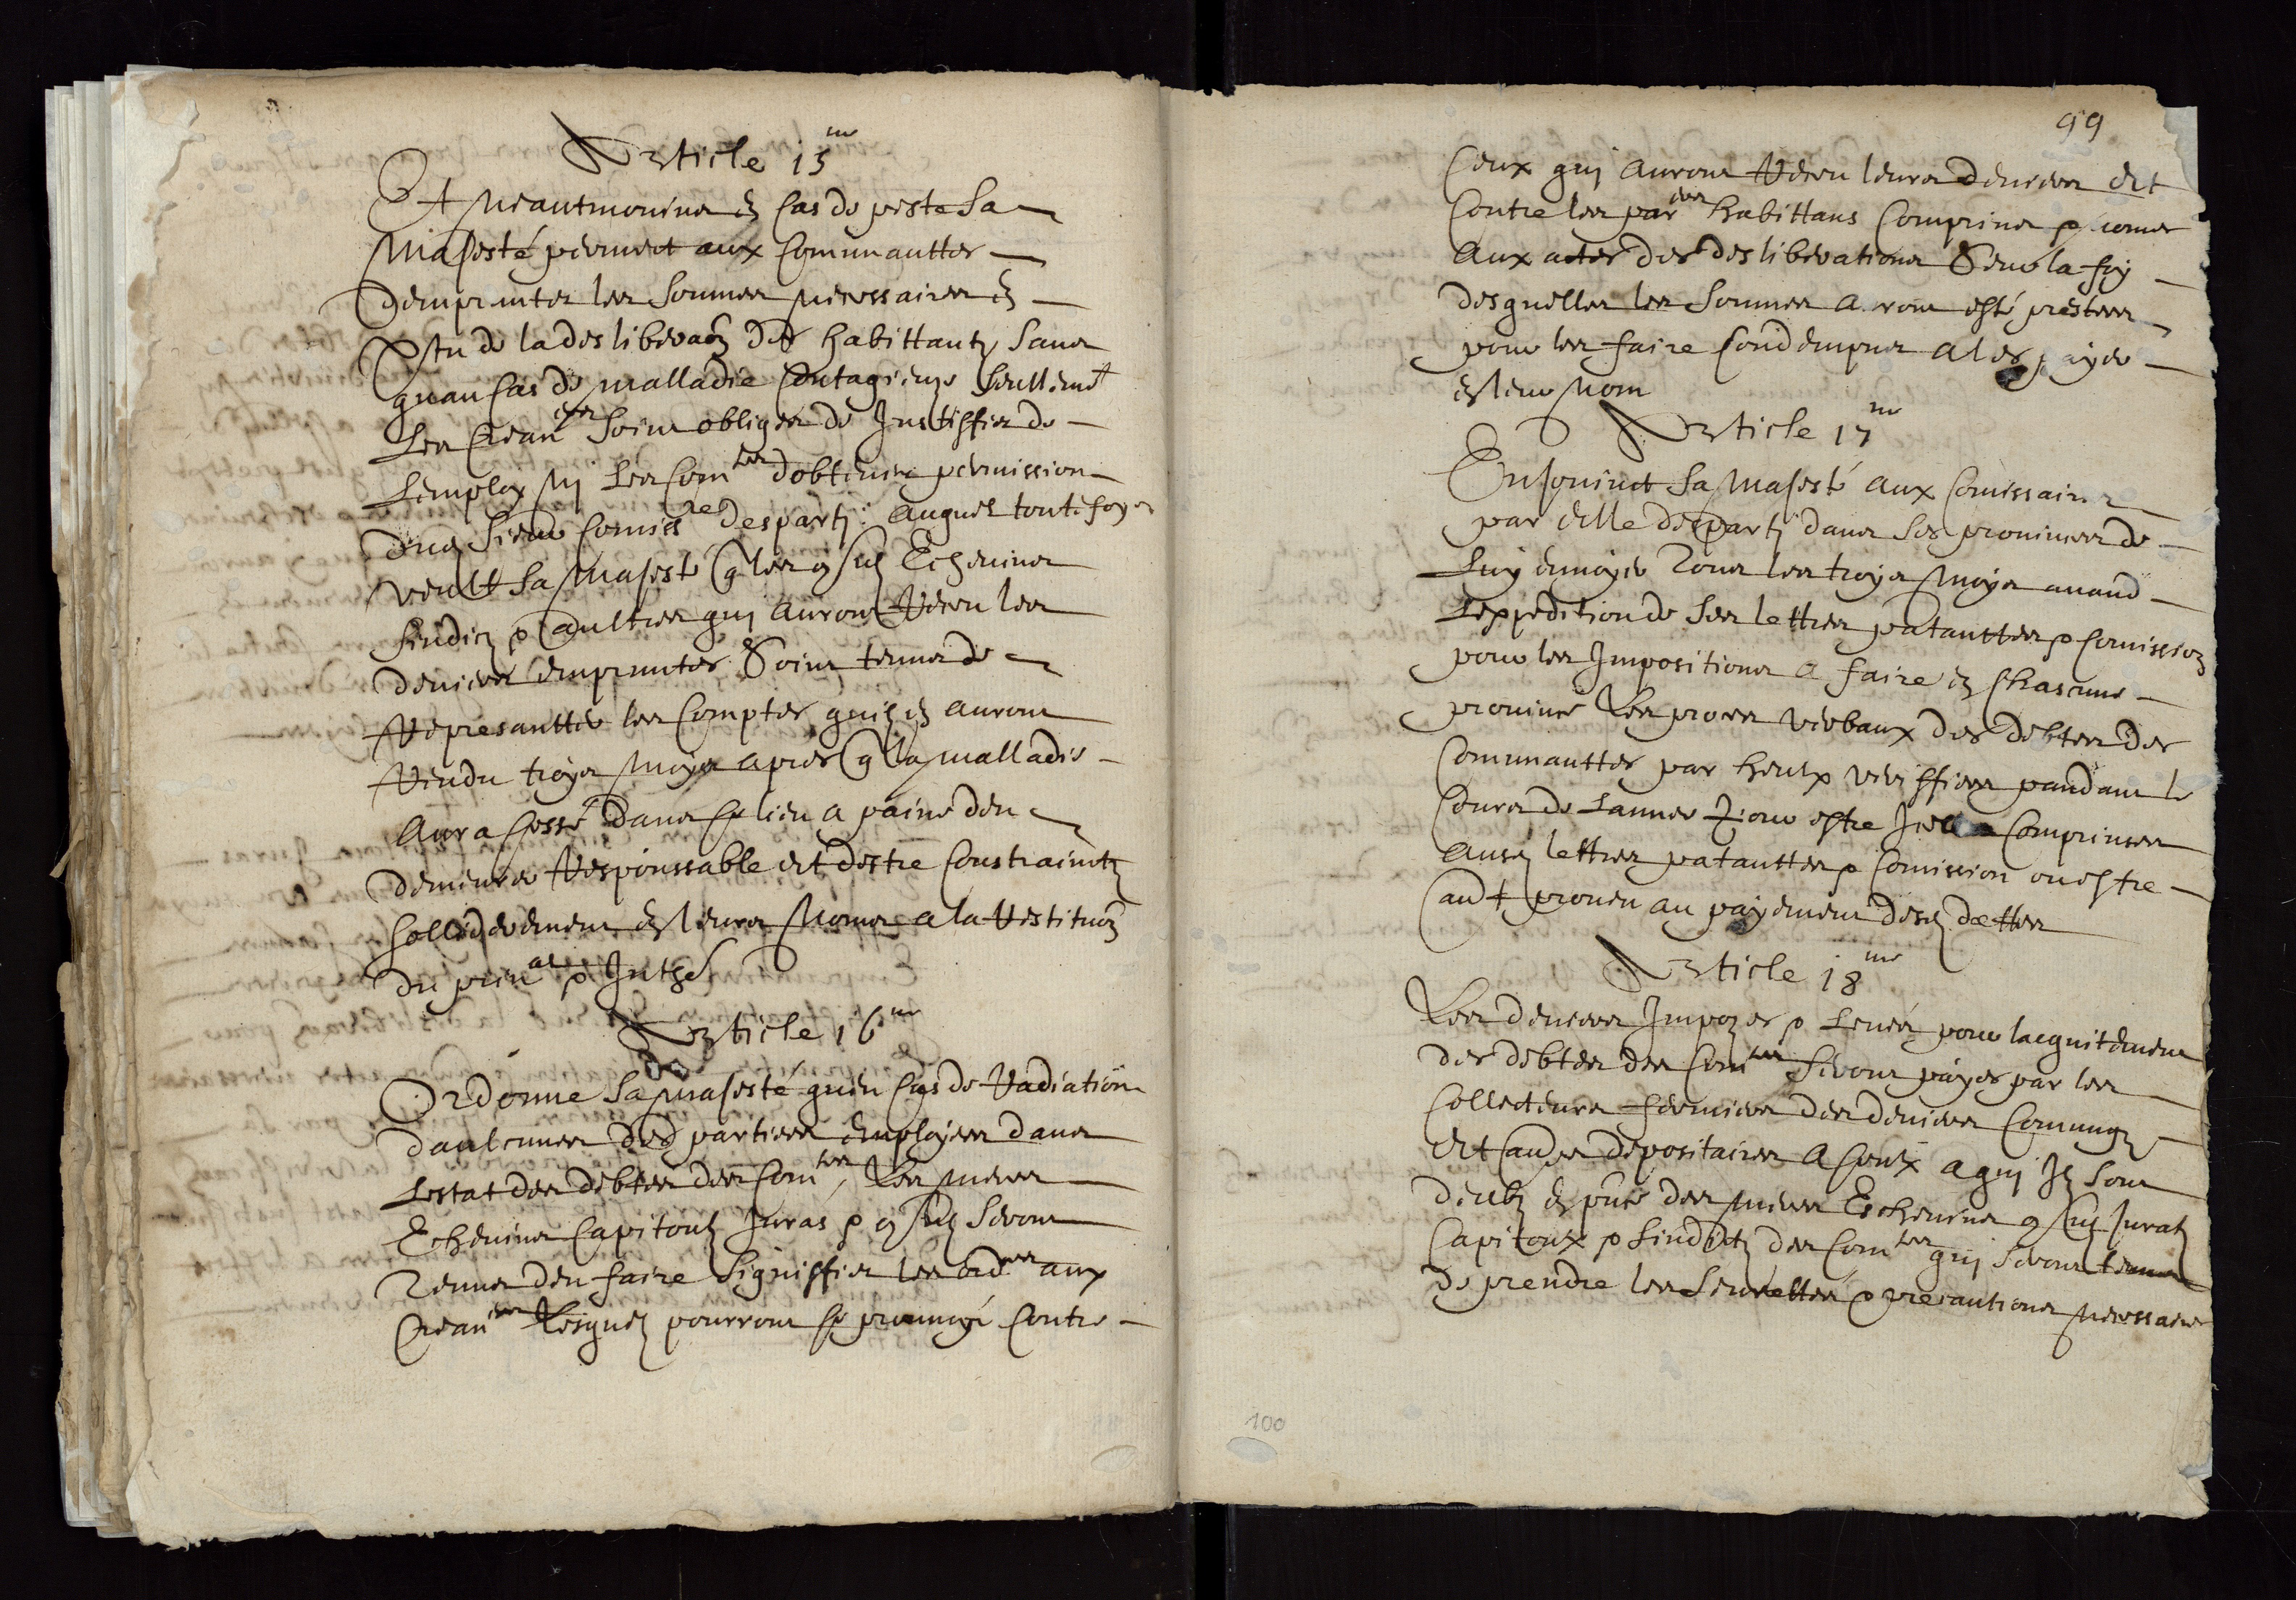 Article 15me
Et Neantmoins en cas de peste Sa
Majesté permect aux Communauttes
demprunter les Sommes necessaires en
vertu de la desliberaon des habittantz sans
quau cas de malladie Contagieuze seullemt
Les Crean ers soint obliges de Justiffier de
Lemploy Ny Les Com tes dobtenir permission
dud sieur Comis re desparty auquel toutefoys
veult Sa Majesté q les consulz Echevins
Sindicz & aultres qui auront Receu les
deniers empruntes Soint tenus de
Represantter les Comptes quilz en auront
Rendu troys Moys apres q la malladie
Aura cessé dans ce lieu a paine den
demeurer Responssable et destre Constrainctz
sollidderement en leurs Noms a la Restituon
du prin al & Jnthes
Article 16me
Ordonne Sa Majesté quen cas de Radiation
daulcunes des parties employees dans
Lestat des debtes des Com tes Les Maires
Echevins Capitoulz Juras & consulz seront
Tenus den faire Signiffier les ord ces aux
Crean ers Lesquelz pourront se prouvoyr Contre
99
Ceux qui auront Receu leurs deniers et
Contre les par ers habittans Comprins & només
Aux actes des desliberations Soubz la foy
desquelles les Sommes auront esté prestees
pour les faire Condempner a les payer
en leur Nom
Article 17me
Enjoinct Sa Majesté aux Comissaires
par elle desparty dans ses provinces de
Luy envoyer Tous les troys Moys avand
Lexpedition de Ses lettres patanttes & Comission
pour les Jmpositions a faire en chascune
province Les proces verbaux des debtes des
Communauttes par heux veriffiees pandant le
Cours de Lannee pour estre Comprinses
Ausd lettres patanttes & Comission ou estre
Aud t proveu au payement desd dettes
Article 18me
Les deniers Jmpozes & Levés pour lacquitement
des debtes des Com tes Seront payes par les
Collecteurs fermiers des deniers Communs
et depositaires a ceux a qui Jlz Sont
deubz en pnce des Maires Echevins consulz Juratz
Capitoux & Sindictz des Com tes qui seront tenus
de prendre les Seurettes & precautions Necessaires
100